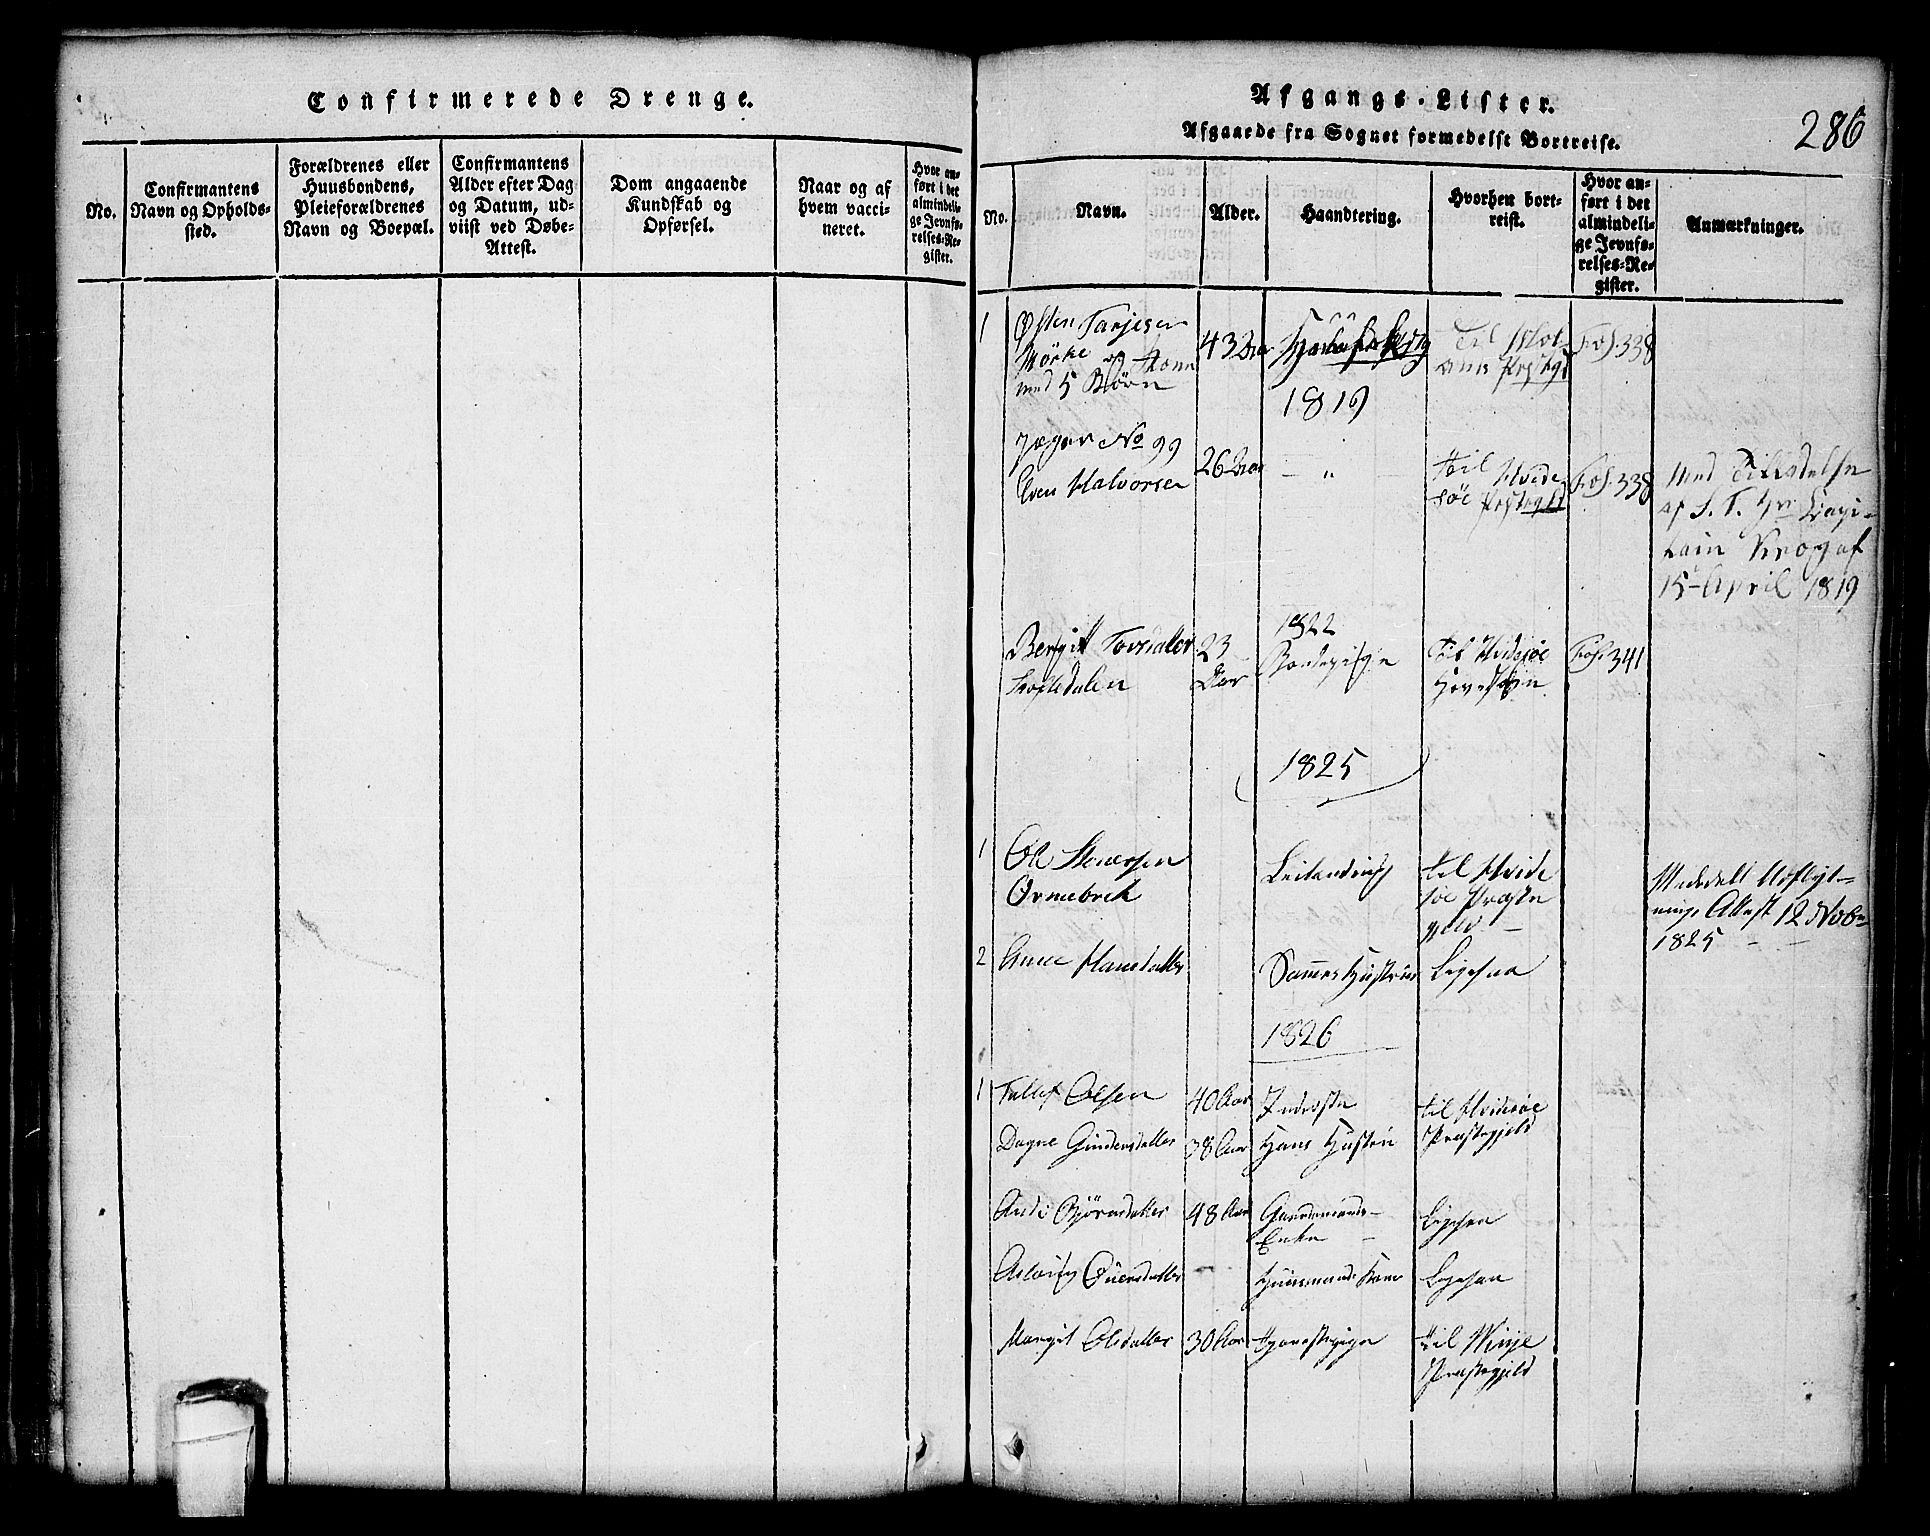 Confirmerede Drenge.
No.
Confirmantens
Navn og Opholds-
sted.
Forældrenes eller
Huusbondens,
Pleieforældrenes
Navn og Boepæl.
Confirmantens
Alder efter Dag
og Datum, ud-
viist ved Døbe-
Attest.
Dom angaaende
Kundskab og
Opførsel.
Naar og af
hvem vacci-
neret.
Hvor an-
ført i det
almindeli-
ge Jevnfø-
relses-Re-
gister.
Afgangs-Lister.
Afgaaede fra Sognet formedelst Bortreise.
286
No.
Navn.
Alder.
Haandtering.
Hvorhen bort-
reist.
Hvor an-
ført i det
almindeli-
ge Jevnfø-
relses-Re-
gister.
Anmærkninger.
1
Østen Tarjesen
Mörke og Kone
med 5 Börn
43 Aar
Til Mol-
Fol. 338
1819
Jæger No 99
Even Halvorsen
26 Aar
— "
til Hvide
söe Prstegld
Fol. 338
Med Tilladelse
af S. T. Hr Capi-
tain Krog af
15 April 1819
1822
Bergit Tovsdatter
23
Aar
Bondepige
til Hvidesöe
Fol. 341
1825
1
Ole
Ormebrek
Leilending
til Hvide
söe Præste
gield —
Meddelt Udflyt-
nings Attest 12 Nobr
1825 — —
2
Anne Hansdatter
Sammes Hustrue
Ligesaa
1826
1
Tallef Olsen
40 Aar
Inderste
til Hvidesöe
Præstegjeld
Dagne Gundersdatter
38 Aar
Hans Hustru
Björnsdatter
48 Aar
Gaardmands-
Enke —
Ligesaa
Aslaug
—
Huusmands Kone
Ligesaa
Margit Olsdatter
30 Aar
til Winje
Præstegjeld